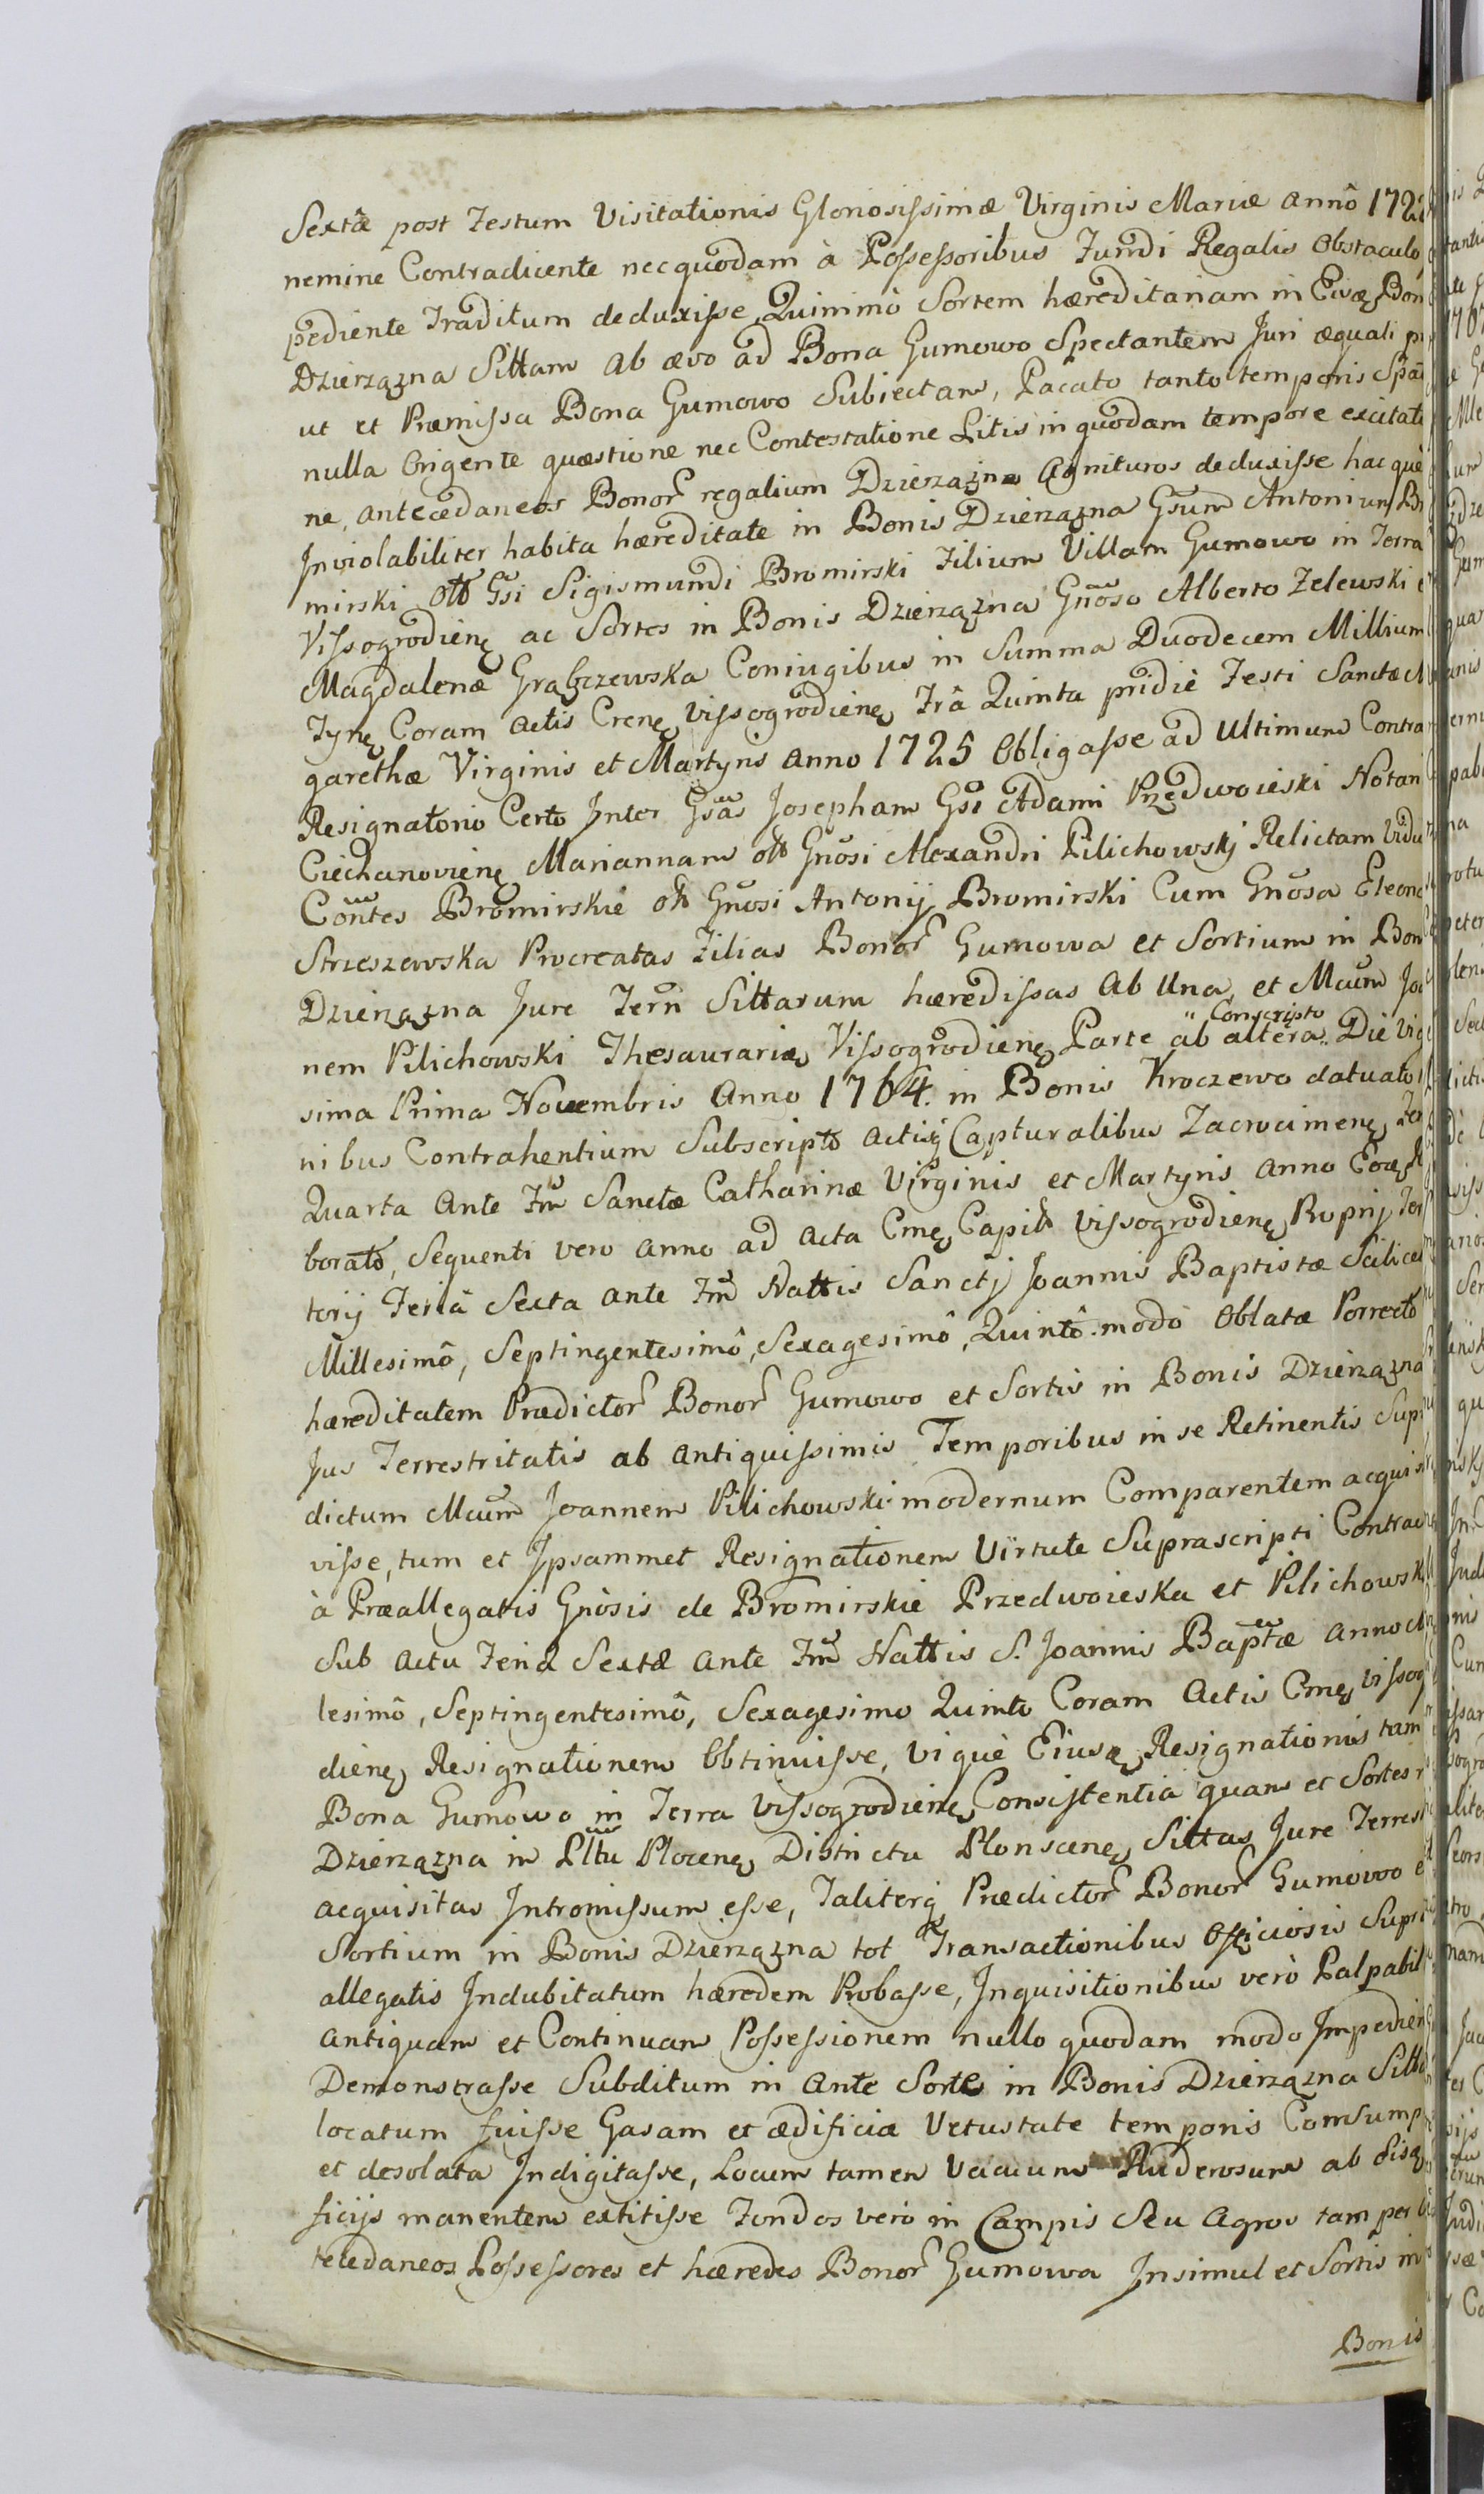 Sextâ post Festum Visitationis Gloriosissimæ Virginis Mariæ annô 172
nemine Contradicente nec quodam à Possessoribus Fundi Regalis Obstaculo
pediente Traditum deduxisse, Quinimò Sortem hæreditariam in Eisdę Bon
Dzierzązna Sittam ab ævo ad Bona Gumowo Spectantem Juri æquali
ut et Præmissa Bona Gumowo Subiectam, Pacato tanto temporis Spat
nulla Origente quæstione nec Contestatione Litis in quodam tempore excitat
ne, antecedaneos Bonor regalium Dzierzązna agnituros deduxisse hac què
Inviolabiliter habita hæreditate in Bonis Dzierzązna Gsum Antonium Br
mirski olt Gsi Sigismundi Bromirski Filium Villam Gumowo in Terra
Vissogrodienę ac Sortes in Bonis Dzierzązna Gnoso Alberto Zelewski
Magdalenæ Grąbczewska Coniugibus in Summa Duodecem Millium
Fynę Coram actis Crenę Vissogrodienę Frâ Quinta pridiè Festi Sanctæ M
garethæ Virginis et Martyris anno 1725 Obligasse ad Ultimum Contra
Resignatorio Certo Inter Gsas Josepham Gsi Adami Przedwoieski Notari
Ciechanovienę Mariannam olt Gnosi Alexandri Pilichowskj Relictam Vidu
Contes Bromirskie olt Gnosi Antonij Bromirski Cum Gnosa Eleono
Strzeszewska Procreatas Filias Bonor Gumowa et Sortium in Bon
Dzierzązna Jure Terrì Sittarum hæredissas ab Una, et Mcum Jo
Conscripto
nem Pilichowski Thesaurarię Vissogrodienę Parte ab altera Die Vig
sima Prima Novembris anno 1764. in Bonis Kroczewo datuato
nibus Contrahentium Subscripto actisq Capturalibus Zacrocimenę, Fer
Quarta ante Fm Sanctæ Catharinæ Virginis et Martyris anno Eodę
borato, Sequenti vero anno ad acta Cmę Capit Vissogrodienę Proprij Ter
torij Feriâ Sexta ante Fm Nattis Sanctj Joannis Baptistæ Scilicet
Millesimô, Septingentesimô, Sexagesimô, Quintô modo Oblatæ Porrecto
hæreditatem Prædictor Bonor Gumowo et Sortis in Bonis Dzierzązna
Jus Terrestritatis ab antiquissimis Temporibus in se Retinentis Sup
dictum Mcum Joannem Pilichowski modernum Comparentem acqui
visse, tum et Ipsammet Resignationem Virtute Suprascripti Contrac
à Præallegatis Gnosis de Bromirskie Przedwoieska et Pilichowsk
Sub actu Feria Sextæ ante Fm Nattis S. Joannis Baptæ anno
lesimô, Septingentesimô, Sexagesimo Quinto Coram actis Cmę Vissog
dienę Resignationem Obtinuisse, Vi què Eiusdę Resignationis tam
Bona Gumowo in Terra Vissogrodienę Consistentia quam et Sortes
Dzierzązna in Pltu Plocenę Districtu Plonscenę Sittas Jure Terrest
acquisitas Intromissum esse, Taliterq Prædictor Bonor Gumowo e
Sortium in Bonis Dzierzązna tot Transactionibus Officiosis Supra
allegatis Indubitatum hæredem Probasse, Inquisitionibus verò Palpabil
antiquam et Continuam Possessionem nullo quodam modo Impedien
Demonstrasse Subditum in ante Sorte in Bonis Dzierzązna Sitt
locatum fuisse Gasam et ædificia Vetustate temporis Comsump
et desolata Indigitasse, Locum tamen Vacuum Ruderosum ab
ficijs manentem extitisse Fondos verò in Campis Seu agros tam per
tecedaneos Possessores et hæredes Bonor Gumowa Insimul et Sortis in
Bonis